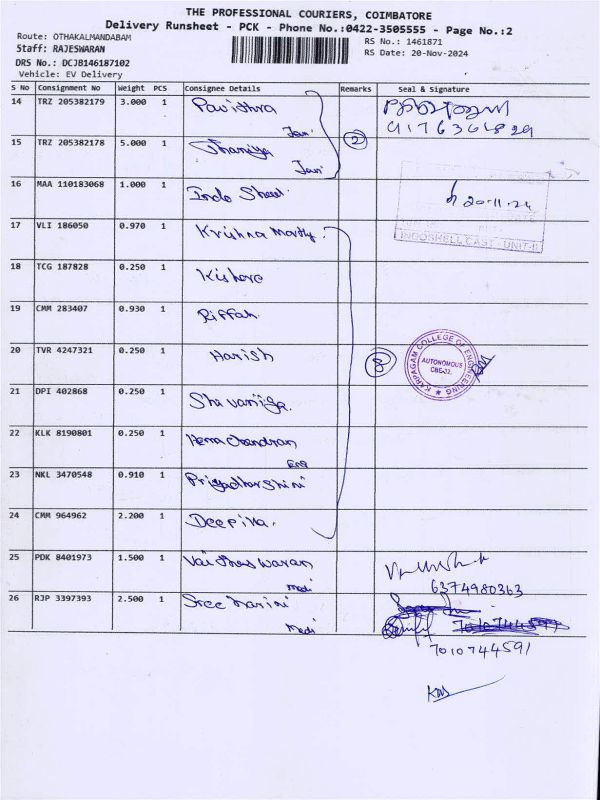 THE PROFESSIONAL COURIERS, COIMBATORE
Delivery Runsheet - PCK - Phone No.:0422-3505555 - Page No.:2
Route: OTHAKALMANDABAM
Staff: RAJESWARAN
DRS No.: DCJB146187102
Vehicle: EV Delivery
RS No.: 1461871
RS Date: 20-Nov-2024
S No Consignment No Weight PCS Consignee Details Remarks Seal & Signature
14 TRZ 205382179 3.000 1 Pavithra
9176361829
15 TRZ 205382178 5.000 1 Thaniya 2
16 MAA 110183068 1.000 1 Indo Sheel 20-11-24
INDOSHELL CAST - UNIT-II
17 VLI 186050 0.970 1 Krishna
18 TCG 187828 0.250 1 Kishore
19 CMM 283407 0.930 1 Riffah
20 TVR 4247321 0.250 1 Harish 8
KARPAGAM COLLEGE OF ENGINEERING
AUTONOMOUS
CBE-32.
21 DPI 402868 0.250 1 Shivaniya.
22 KLK 8190801 0.250 1 Hema Chandran
23 NKL 3470548 0.910 1 Priyadharshini
24 CMM 964962 2.200 1 Deepika.
25 PDK 8401973 1.500 1 Vaitheeswaran
medi
6374980363
26 RJP 3397393 2.500 1 Sree Harini
medi
7010744591
7010744591